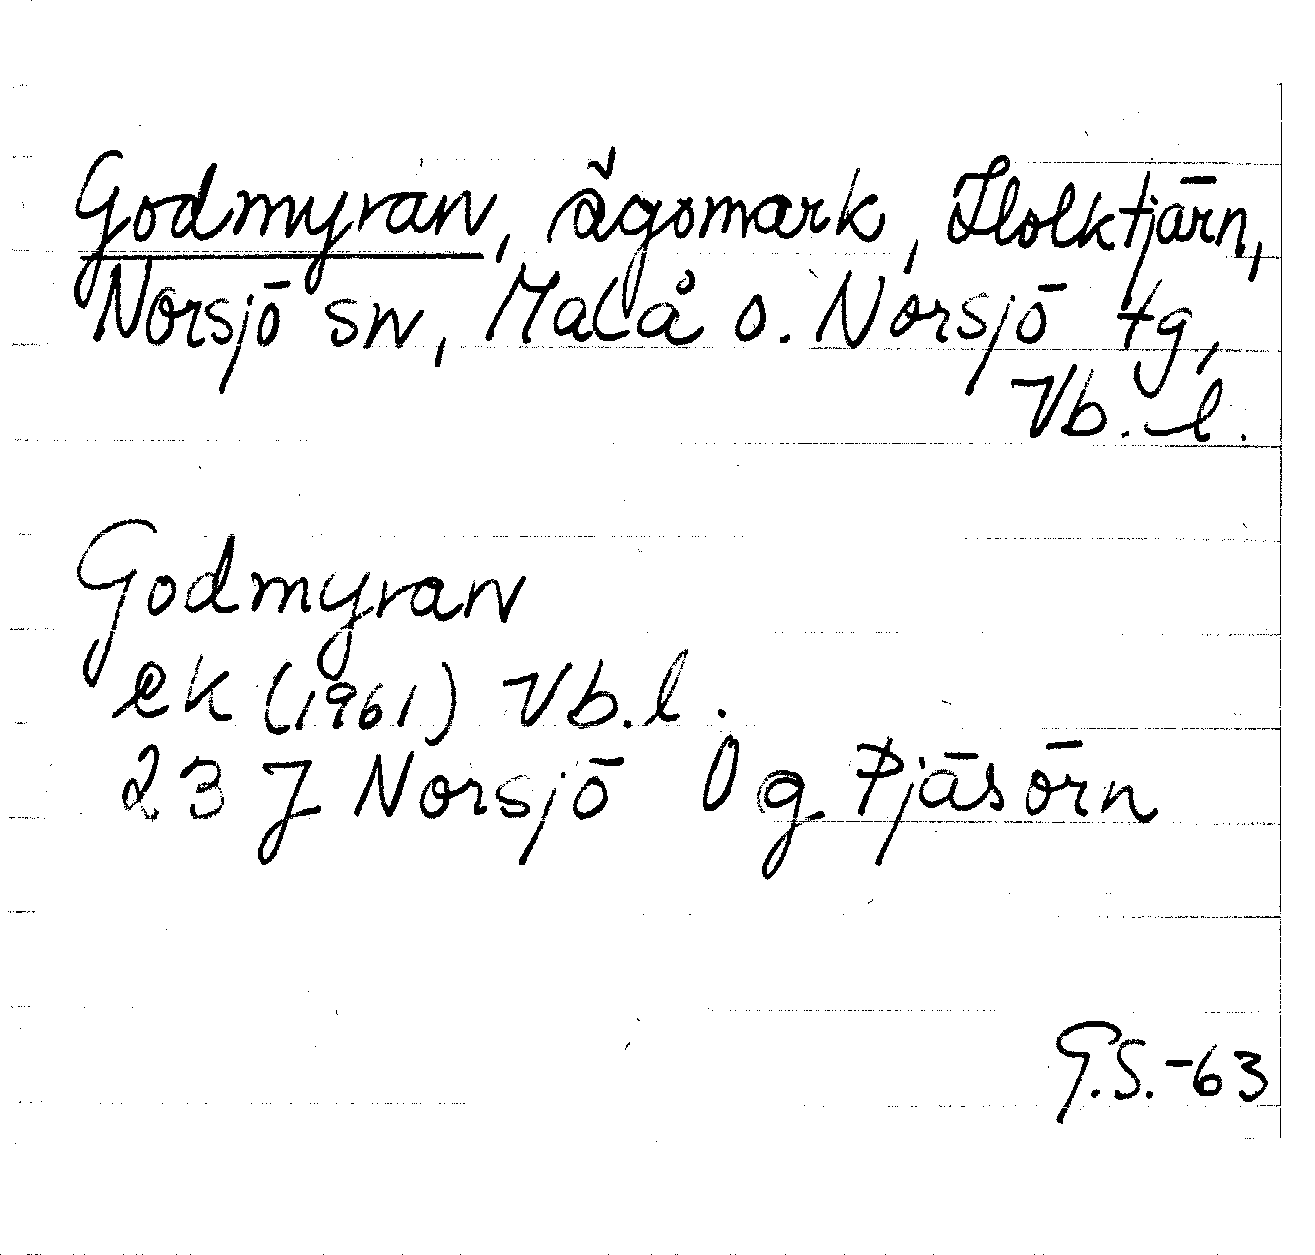 Godmyran, ägomark, Holktjärn,
Norsjö sn, Malå o. Norsjö tg,
Vb. l.
Godmyran
ek (1961) Vb. l.
23 J Norsjö 0 g Pjäsörn
G.S. -63